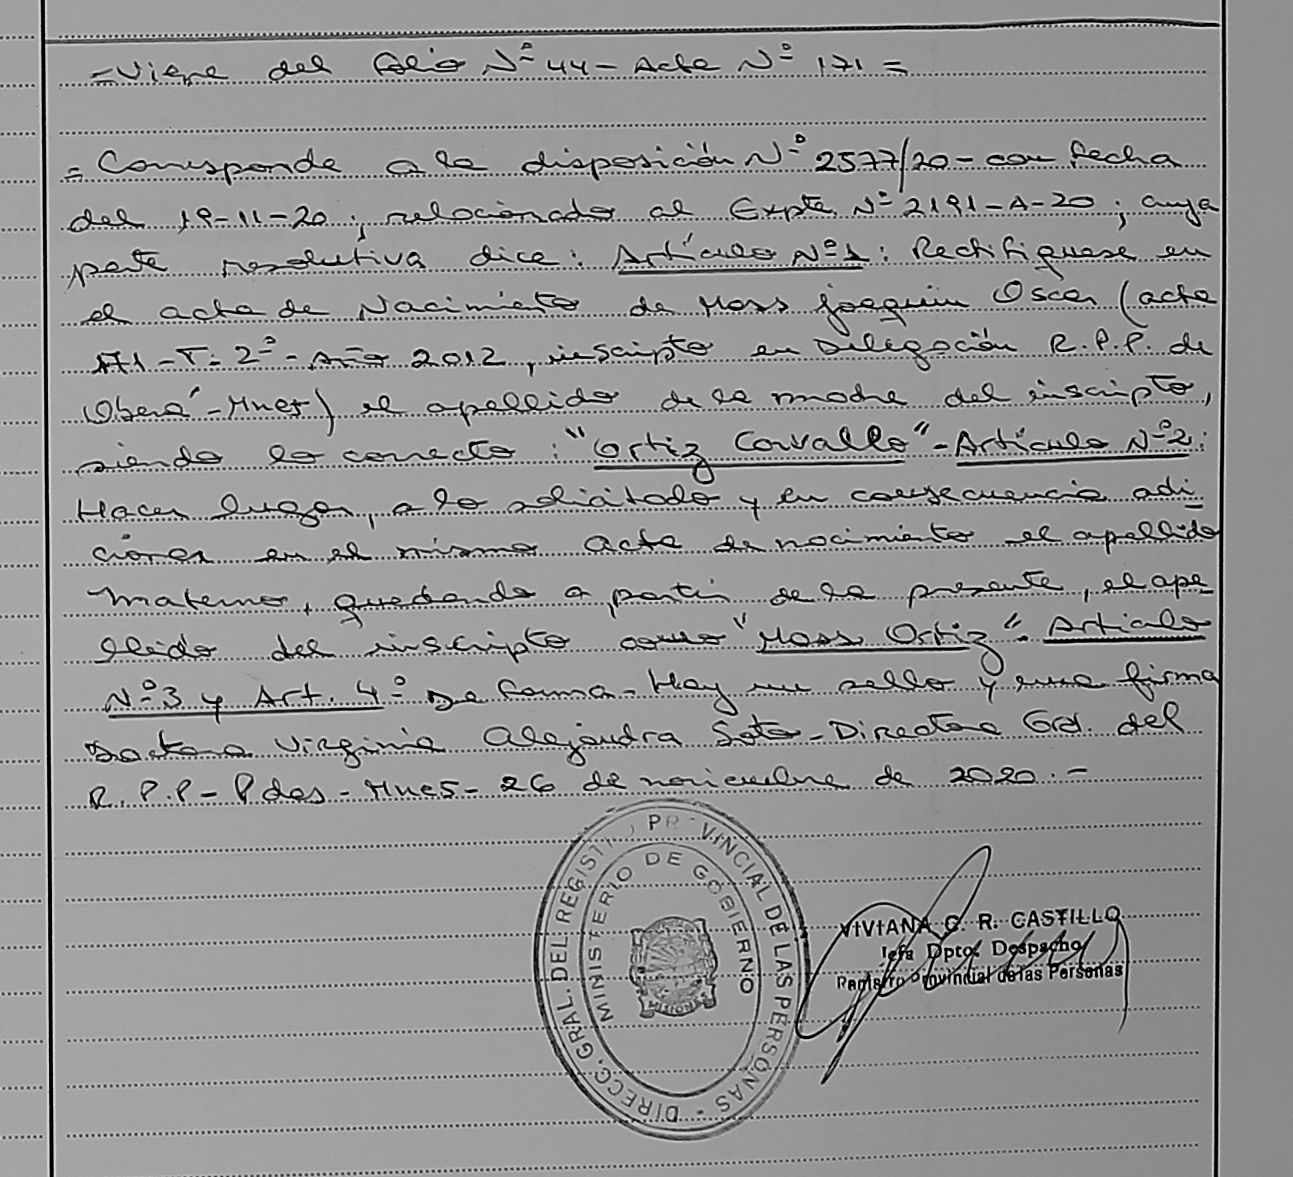 =Viene del Folio Nº 44 - Acta Nº 171 =
= Corresponde a la disposición Nº 2577/20 - con fecha
del 19-11-20; relacionado al Expte. Nº 2191-A-20; cuya
parte resolutiva dice: Artículo Nº1: Rectifiquese en
el acta de Nacimiento de Moss Joaquin Oscar (acta
171 - T: 2º - Año 2012, inscripto en Delegación R.P.P. de
Oberá - Mnes) el apellido de la madre del inscripto,
siendo lo correcto: "Ortiz Corvallo" - Artículo Nº2:
Hacer lugar, a lo solicitado y en consecuencia adi-
cionar en el mismo acta de nacimiento el apellido
materno, quedando a partir de la presente, el ape-
llido del inscripto como "Moss Ortiz". Articulo
Nº3 y Art. 4º De forma - Hay un sello y una firma
Doctora Virginia Alejandra Soto - Directora Gral. del
R.P.P - Pdas - Mnes - 26 de noviembre de 2020.-
DIRECC. GRAL. DEL REGISTRO PROVINCIAL DE LAS PERSONAS -
MINISTERIO DE GOBIERNO
MISIONES
VIVIANA G. R. CASTILLO
Jefa Dpto. Despacho
Registro Provincial de las Personas